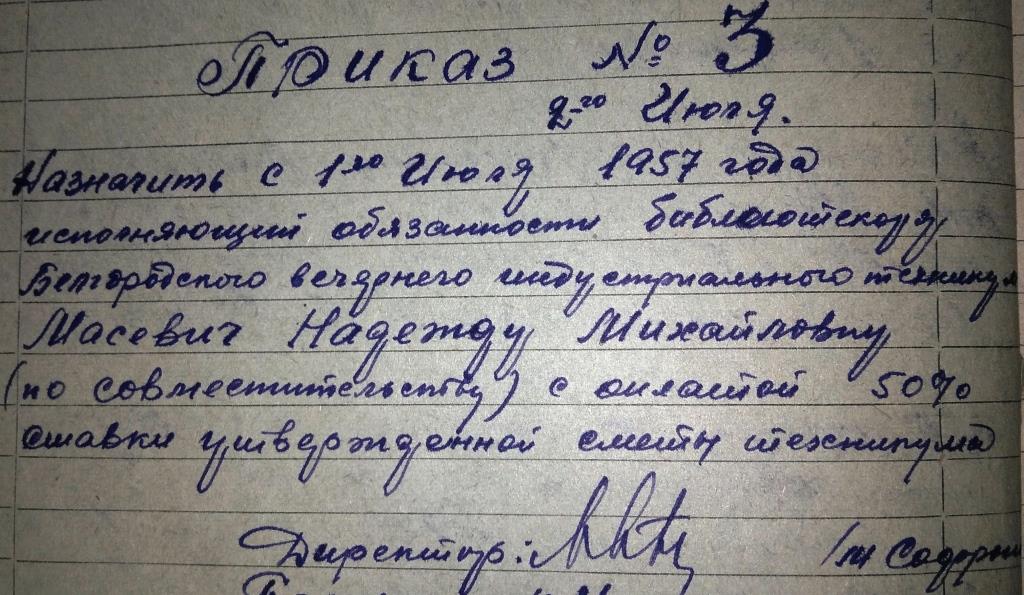 Приказ № 3
2-го Июля.
Назначить с 1го Июля 1957 года
исполняющий обязанности библиотекаря
Белгородского вечернего индустриального техникум
Масевич Надежду Михайловну
(по совместительству) с оплатой 50%
ставки утвержденной сметы техникума
Директор: